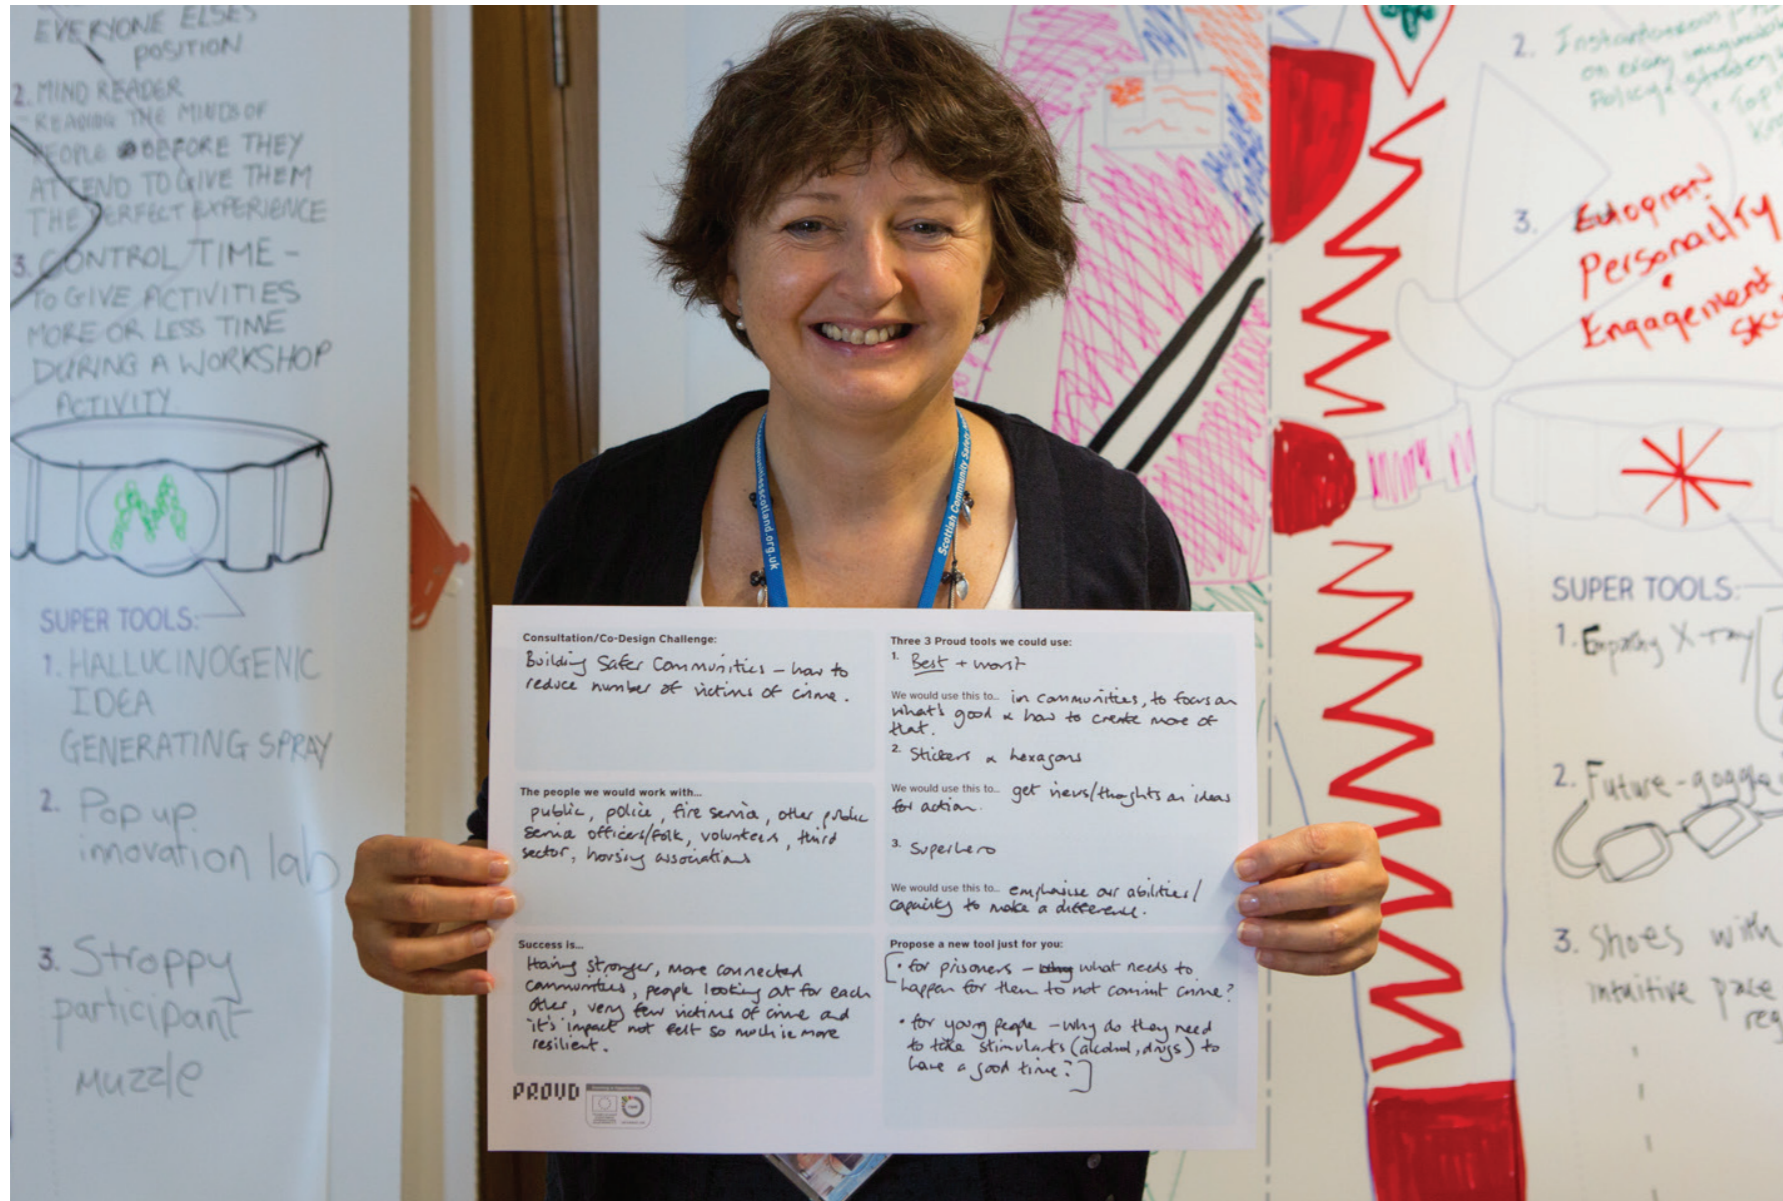 EVERYONE ELSES
POSITION
2. MIND READER
- READING THE MINDS OF
PEOPLE BEFORE THEY
ATTEND TO GIVE THEM
THE PERFECT EXPERIENCE
3. CONTROL TIME -
TO GIVE ACTIVITIES
MORE OR LESS TIME
DURING A WORKSHOP
ACTIVITY
M
SUPER TOOLS:
1. HALLUCINOGENIC
IDEA
GENERATING SPRAY
2. Pop up
innovation lab
3. Stroppy
participant
muzzle
scotland.org.uk
Scottish Community Safety
Consultation/Co-Design Challenge:
Building Safer Communities – how to
reduce number of victims of crime.
The people we would work with...
public, police, fire service, other public
service officers/folk, volunteers, third
sector, housing associations
Success is...
Having stronger, more connected
communities, people looking out for each
other, very few victims of crime and
it's impact not felt so much ie more
resilient.
PROUD
Three 3 Proud tools we could use:
1. Best + worst
We would use this to... in communities, to focus on
what's good & how to create more of
that.
2. Stickers & hexagons
We would use this to... get views/thoghts on ideas
for action.
3. Superhero
We would use this to... emphasise our abilities/
capacity to make a difference.
Propose a new tool just for you:
[• for prisoners – what needs to
happen for them to not commit crime?
• for young people – why do they need
to take stimulants (alcohol, drugs) to
have a good time?]
2. Instantaneous
on every
Policy & strategy
3.
Personality
&
Engagement
SUPER TOOLS:
1. Empathy X-ray
2. Future-goggle
3. Shoes with
intuitive pace
reg